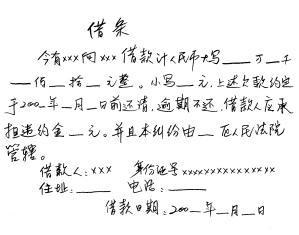 借条
今有xxx向xxx借款计人民币大写____万__千
__佰__拾__元整。小写__元,上述欠款约定
于200_年_月_日前还清,逾期不还,借款人应承
担违约金__元。并且本纠纷由__区人民法院
管辖。
借款人:xxx 身份证号xxxxxxxxxxxxxxx
住址:____ 电话:____
借款日期:200_年_月_日